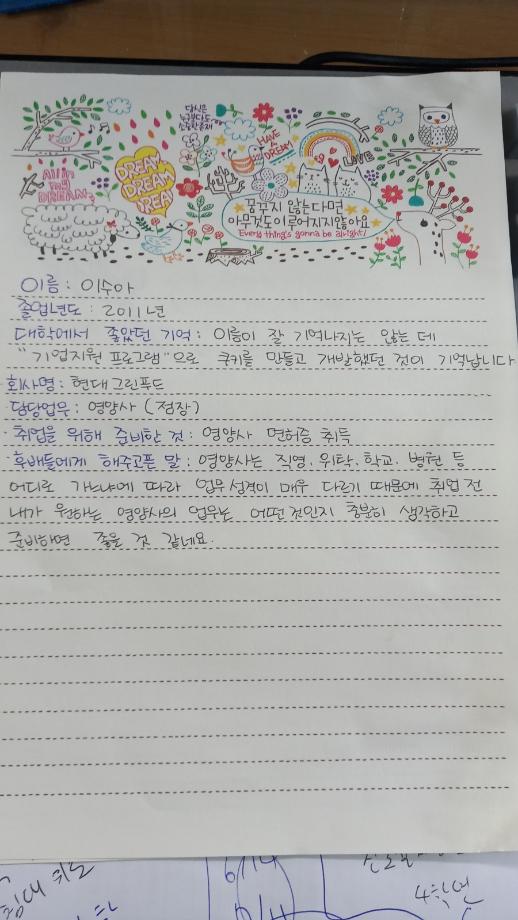 당신은
누구보다도
소중한 존재
HAVE
A
DREAM
LOVE
All in
my
DREAM
DREAM
DREAM
DREAM
꿈꾸지 않는다면
아무것도 이루어지지않아요
Every thing's gonna be alright!
이름 : 이수아
졸업년도 : 2011년
대학에서 좋았던 기억 : 이름이 잘 기억나지는 않는 데
"기업지원 프로그램"으로 쿠키를 만들고 개발했던 것이 기억납니다
회사명 : 현대그린푸드
담당업무 : 영양사 (점장)
· 취업을 위해 준비한 것 : 영양사 면허증 취득
· 후배들에게 해주고픈 말 : 영양사는 직영, 위탁, 학교, 병원 등
어디로 가느냐에 따라 업무 성격이 매우 다르기 때문에 취업 전
내가 원하는 영양사의 업무는 어떤 것인지 충분히 생각하고
준비하면 좋을 것 같네요.
6/14
4학년